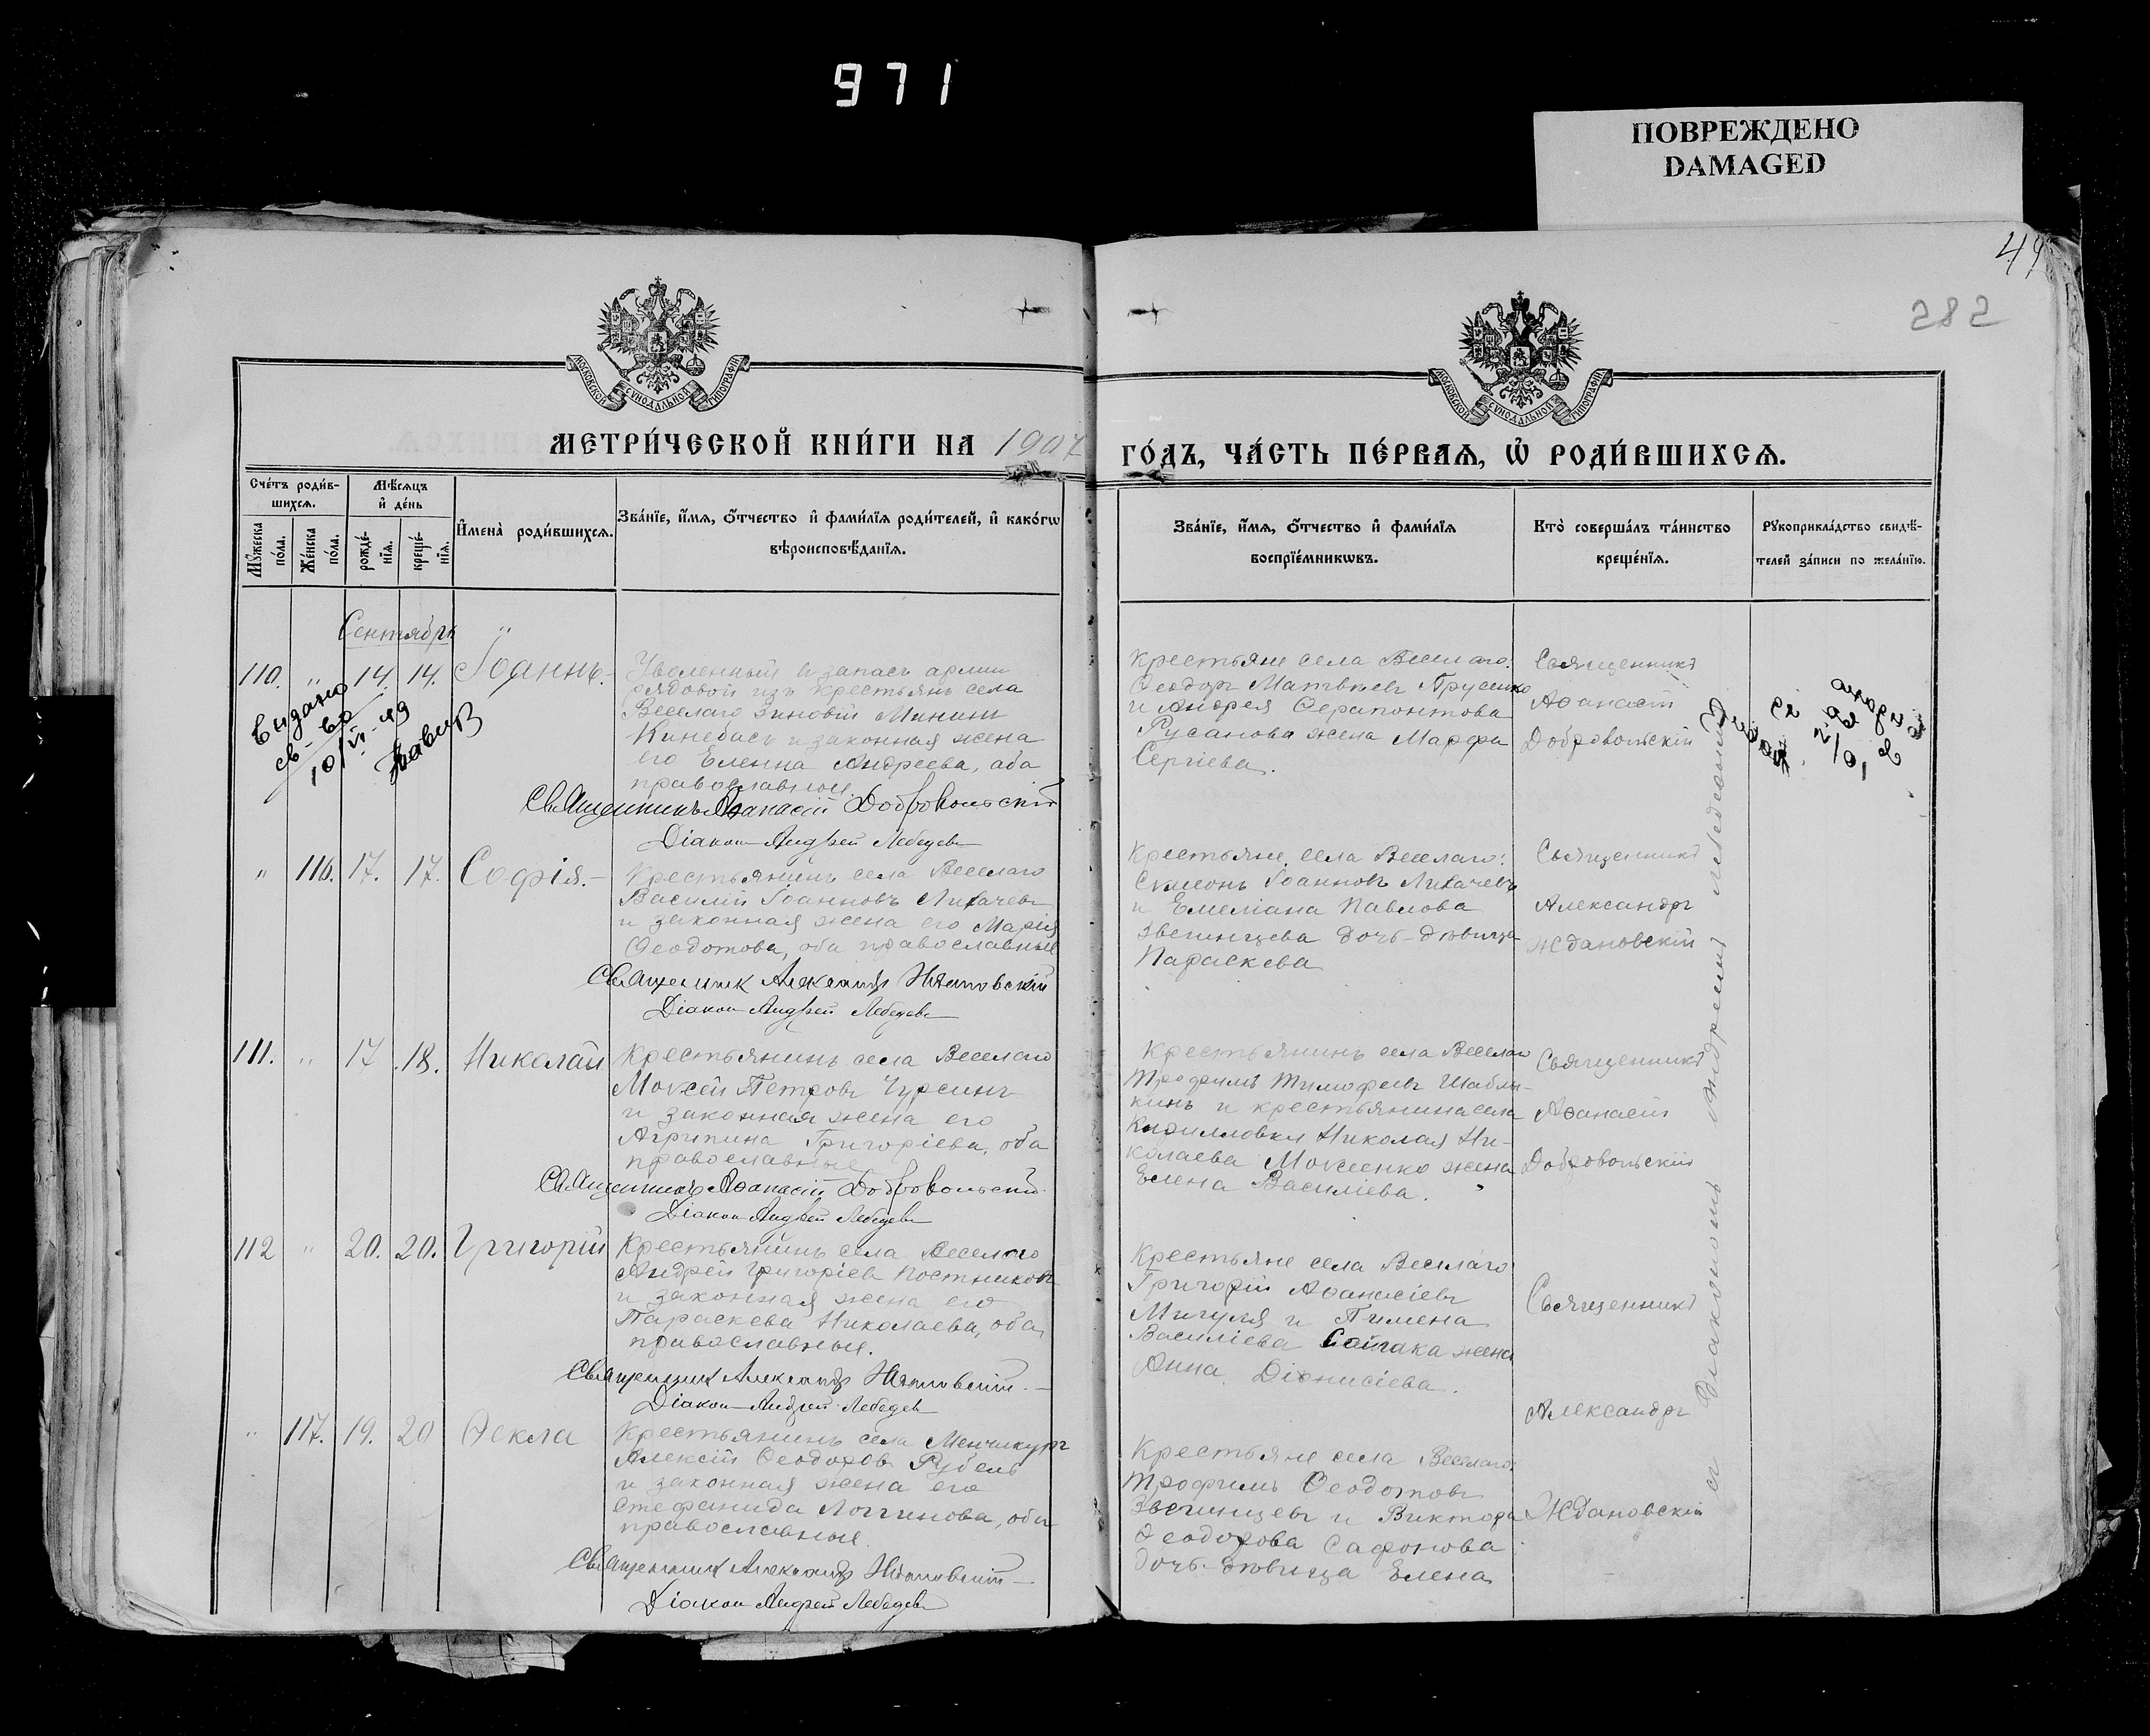 971
ПОВРЕЖДЕНО
DAMAGED
282
МОСКОВСКОЙ СѴНОДАЛЬНОЙ ТИПОГРАФІИ
МОСКОВСКОЙ СѴНОДАЛЬНОЙ ТИПОГРАФІИ
МЕТРИ́ЧЕСКОЙ КНИ́ГИ НА 1907
ГО́ДЪ, ЧА́СТЬ ПЕ́РВАѦ, Ѽ РОДИ́ВШИХСѦ.
Сче́тъ роди́в-
шихсѧ.
Мꙋ́жеска
по́ла.
Же́нска
по́ла.
Мѣ́сѧцъ
и҆ де́нь
рожде́-
нїѧ.
креще́-
нїѧ.
И҆мена̀ роди́вшихсѧ.
Зва́нїе, и҆́мѧ, ѻ҆́тчество и҆ фами́лїѧ роди́телей, и҆ како́гѡ
вѣроисповѣ́данїѧ.
Зва́нїе, и҆́мѧ, ѻ҆́тчество и҆ фами́лїѧ
воспрїе́мникѡвъ.
Кто̀ соверша́лъ та́инство
креще́нїѧ.
Рꙋкоприкла́дство свидѣ́-
телей за́писи по жела́нїю.
Сентябрь
110. " 14. 14. Іоаннъ.
Уволенный в запасъ армии
рядовой изъ крестьянъ села
Веселаго Зиновій Мининъ
Кинебасъ и законная жена
его Елена Андреева, оба
православныи.
Священникъ Аѳанасій Добровольскій
Діаконъ Андрей Лебедевъ
Крестьяне села Веселаго:
Ѳеодоръ Матвѣевъ Прусенко
и Андрея Ѳерапонтова
Русанова жена Марѳа
Сергіева.
Священникъ
Аѳанасій
Добровольскій
Выдано
св-во
10/VI-49
" 116. 17. 17. Софія.
Крестьянинъ села Веселаго
Василій Іоанновъ Лихачевъ
и законная жена его Марія
Ѳеодотова, оба православные
Священникъ Александръ Ждановскій
Діаконъ Андрей Лебедевъ
Крестьяне села Веселаго:
Симеонъ Іоанновъ Лихачевъ
и Емеліана Павлова
Звегинцева дочь-дѣвица
Параскева
Священникъ
Александръ
Ждановскій
111. " 17 18. Николай
Крестьянинъ села Веселаго
Моѵсей Петровъ Чурсинъ
и законная жена его
Агрипина Григоріева, оба
православные
Священникъ Аѳанасій Добровольскій
Діаконъ Андрей Лебедевъ
Крестьянинъ села Веселаго
Трофимъ Тимофеевъ Шабли-
кинъ и крестьянина села
Кирилловки Николая Ни-
колаева Моисеенко жена
Елена Василіева.
Священникъ
Аѳанасій
Добровольскій
112 " 20. 20. Григорій
Крестьянинъ села Веселаго
Андрей Григоріевъ Постниковъ
и законная жена его
Параскева Николаева, оба
православныи.
Священникъ Александръ Ждановскій
Діаконъ Андрей Лебедевъ
Крестьяне села Веселаго
Григорій Аѳанасіевъ
Мигуля и Пимена
Василіева Сайгака жена
Анна Діонисіева.
Священникъ
Александръ
Ждановскій
" 117. 19. 20 Ѳекла
Крестьянинъ села Менчикуръ
Алексій Ѳеодоровъ Рубель
и законная жена его
Стефанида Логгинова, оба
православные.
Священникъ Александръ Ждановскій
Діаконъ Андрей Лебедевъ
Крестьяне села Веселаго:
Трофимъ Ѳеодотовъ
Звегинцевъ и Виктора
Ѳеодорова Сафонова
дочь-дѣвица Елена
съ діакономъ Андреемъ Лебедевымъ